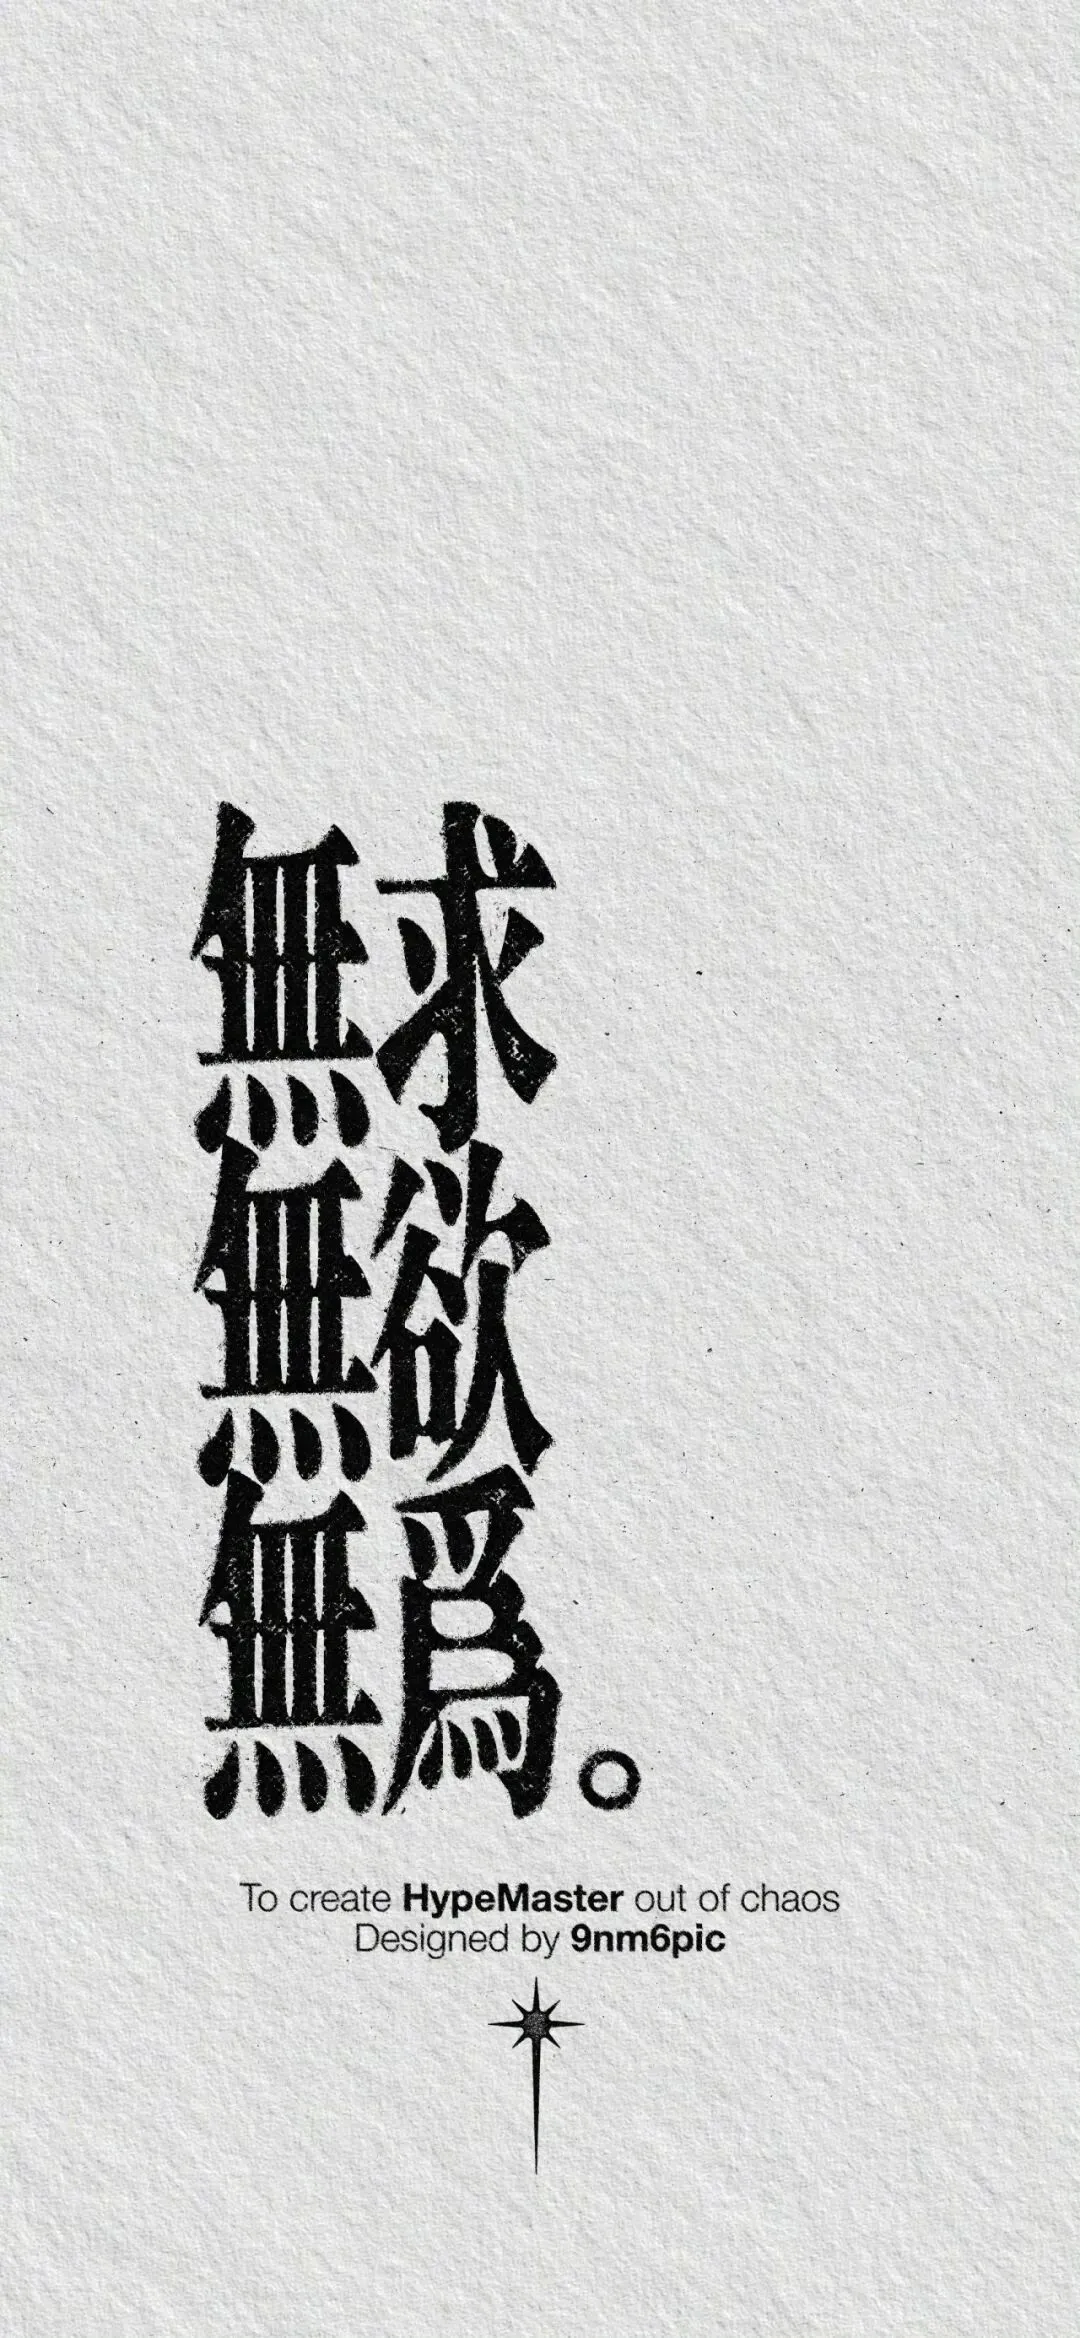 無求
無欲
無爲。
To create HypeMaster out of chaos
Designed by 9nm6pic